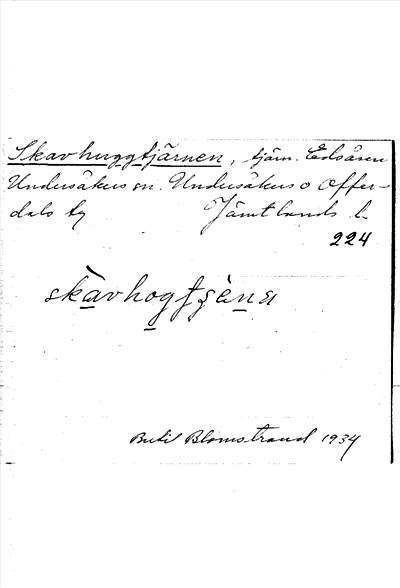 Skavhuggtjärnen, tjärn. Edsåsen
Undersåkers sn. Undersåkers o Offer-
dals tg Jämtlands l.
224
skàvhogtʂèṇa
Bertil Blomstrand 1934